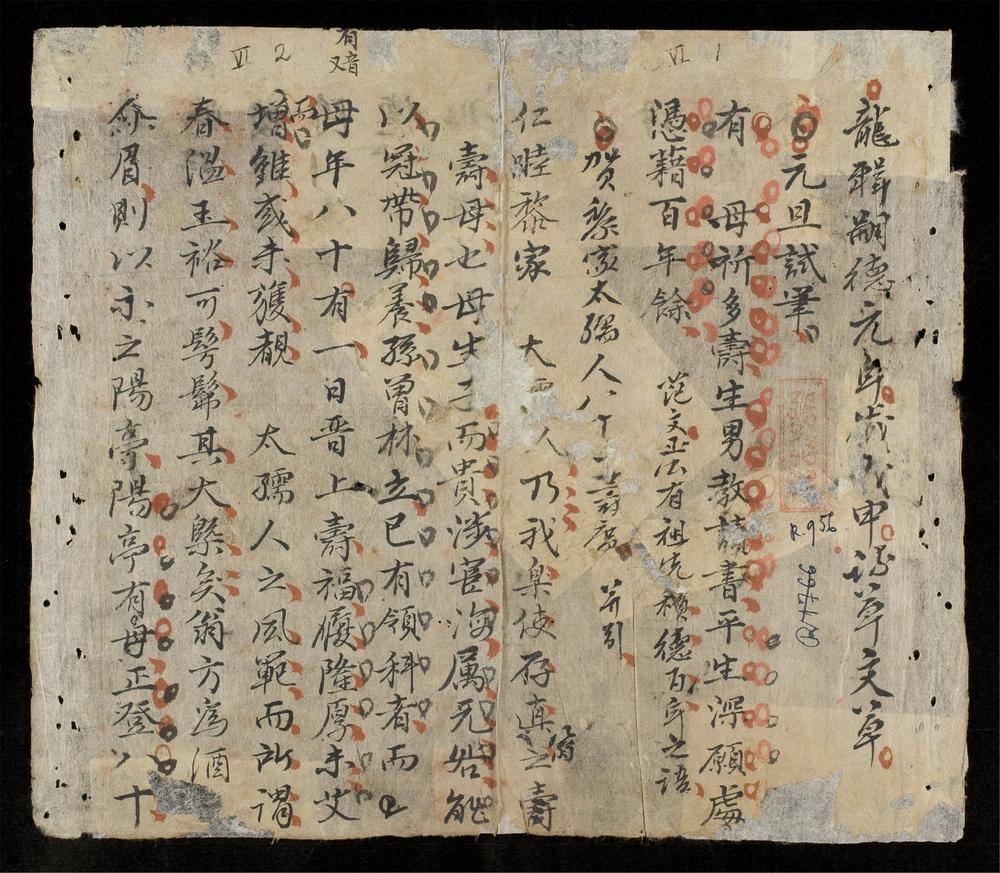 VI 1
龍輯嗣德元年歲戊申詩草文草
元旦試筆
有 母祈多壽生男教讀書平生深願處
憑藉百年餘 范文正公有祖先積德百年之語
賀黎家太孺人八十壽慶 并引
仁睦黎家 大孺人乃我
壽母也母生子而貴
以冠帶歸養孫曾林立已有領科者而
母年八十有一日晉上壽福履隆厚未艾
增雖或未獲覩 太孺人之風範而所謂
春溫玉裕可髣髴其大槩矣翁方為酒
介眉則以示之陽亭陽亭有母正登八十
VI 2
有
又音
R.956